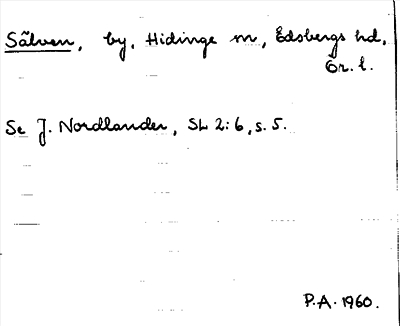 Sälven, by, Hidinge sn, Edsbergs hd,
Ör. l.
Se J. Nordlander, SL 2:6, s. 5.
P.A. 1960.